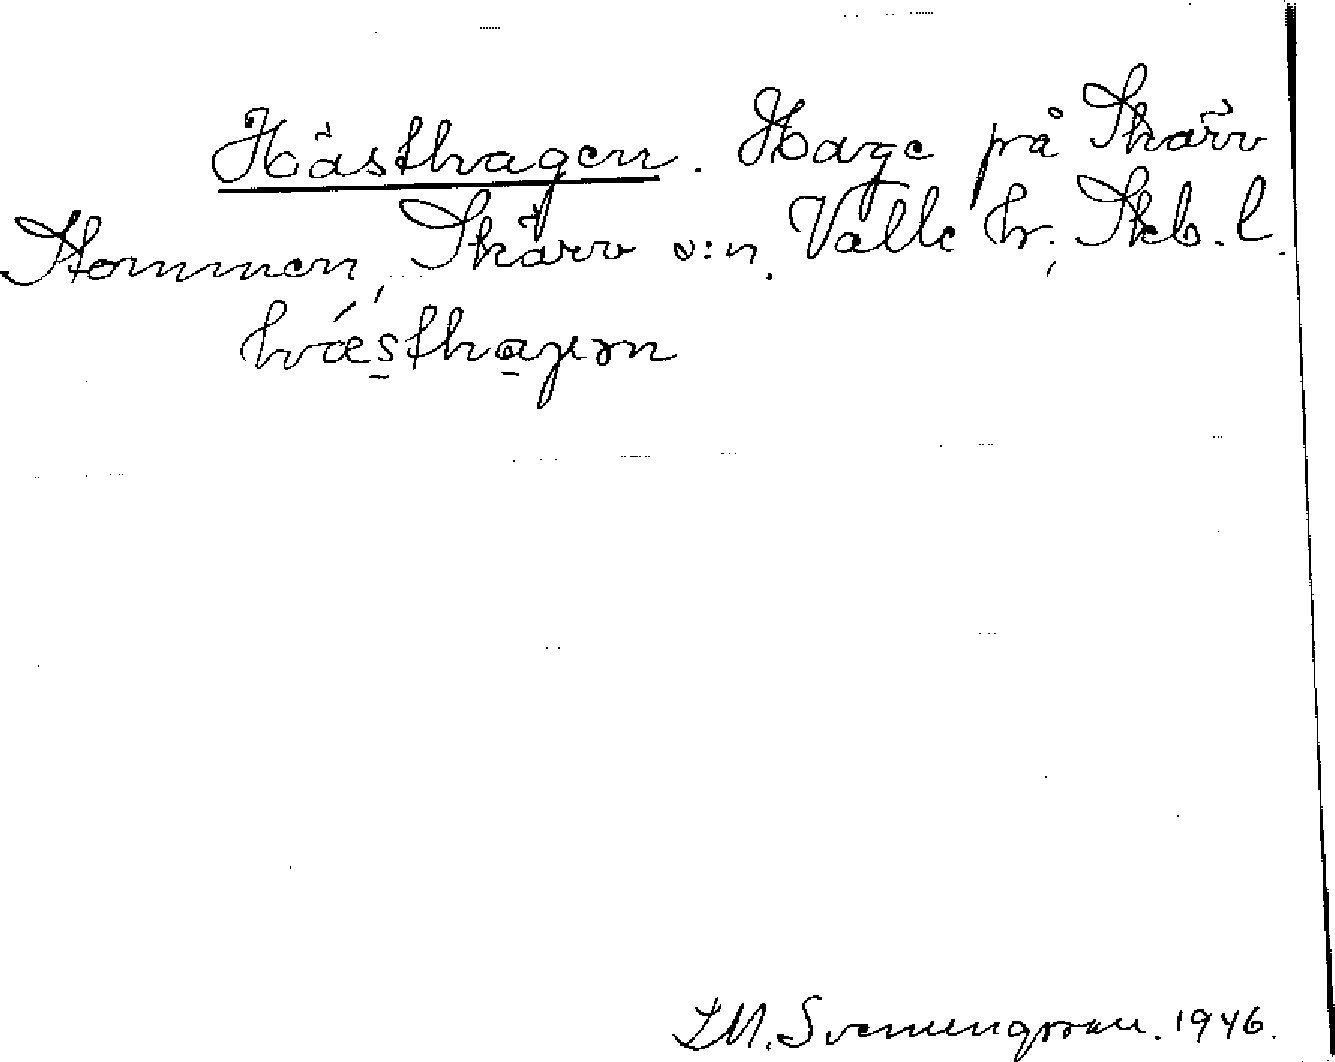 Hästhagen. Hage på Skärv
Stommen, Skärv s:n, Valle hr, Skb. l.
hæ̀sthagən
I.M. Svennungsson. 1946.